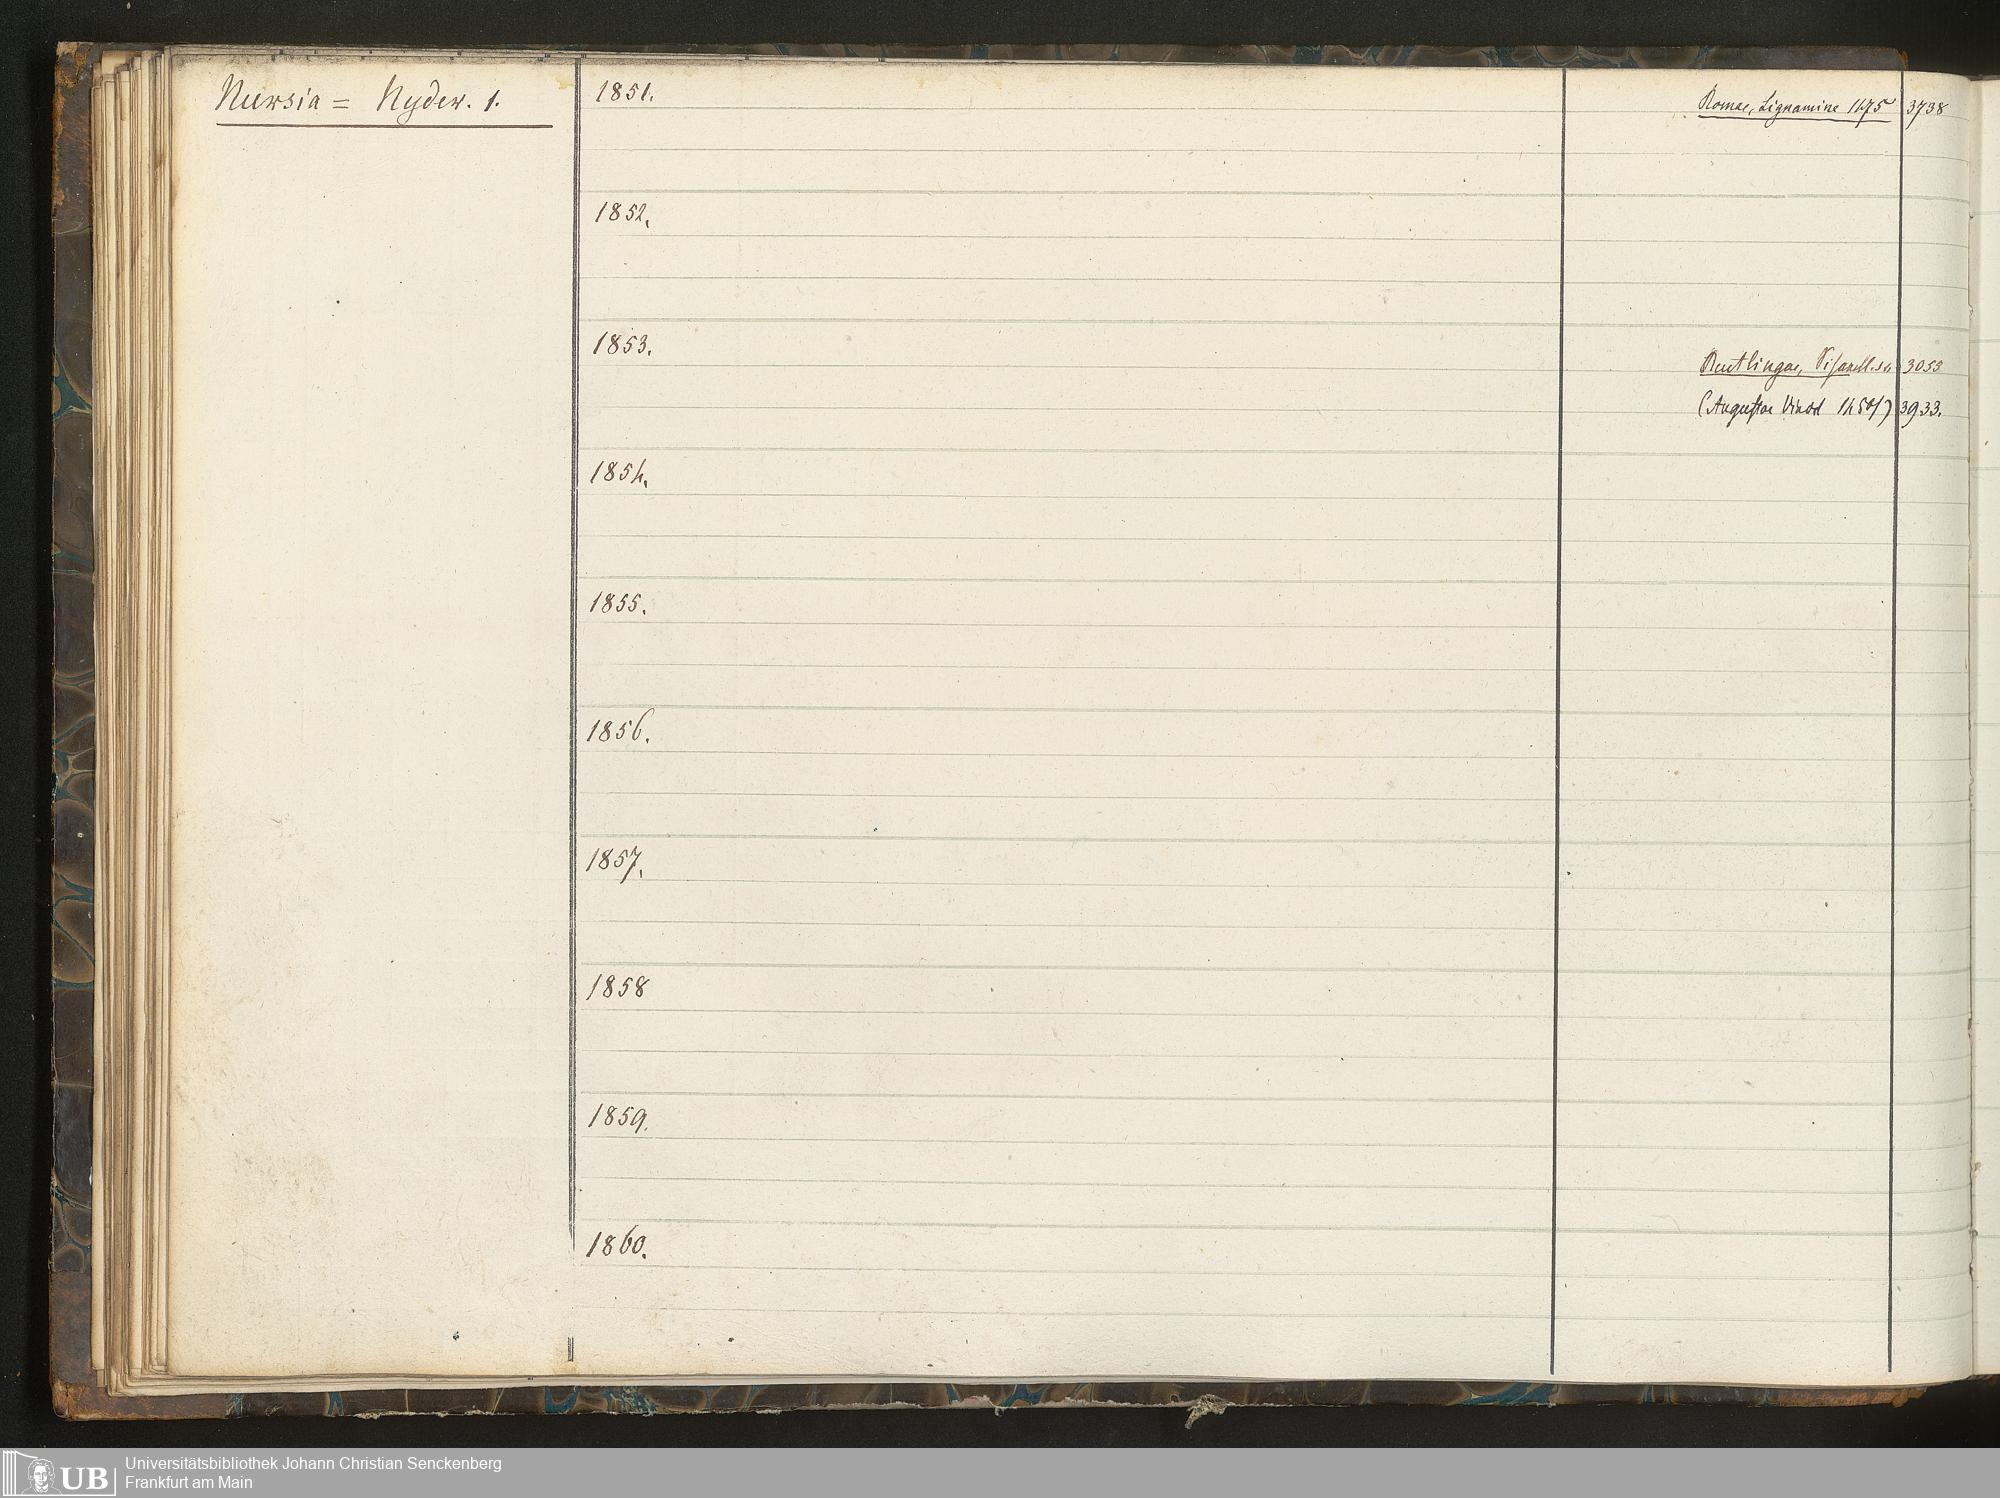 Nursia = Nyder. 1.
1851.
Romae, Lignamine 1475 3738
1852.
1853.
Reutlingae, 3055
(Augustae Vind 3933.
1854.
1855.
1856.
1857.
1858
1859.
1860.
Universitätsbibliothek Johann Christian Senckenberg
Frankfurt am Main
UB